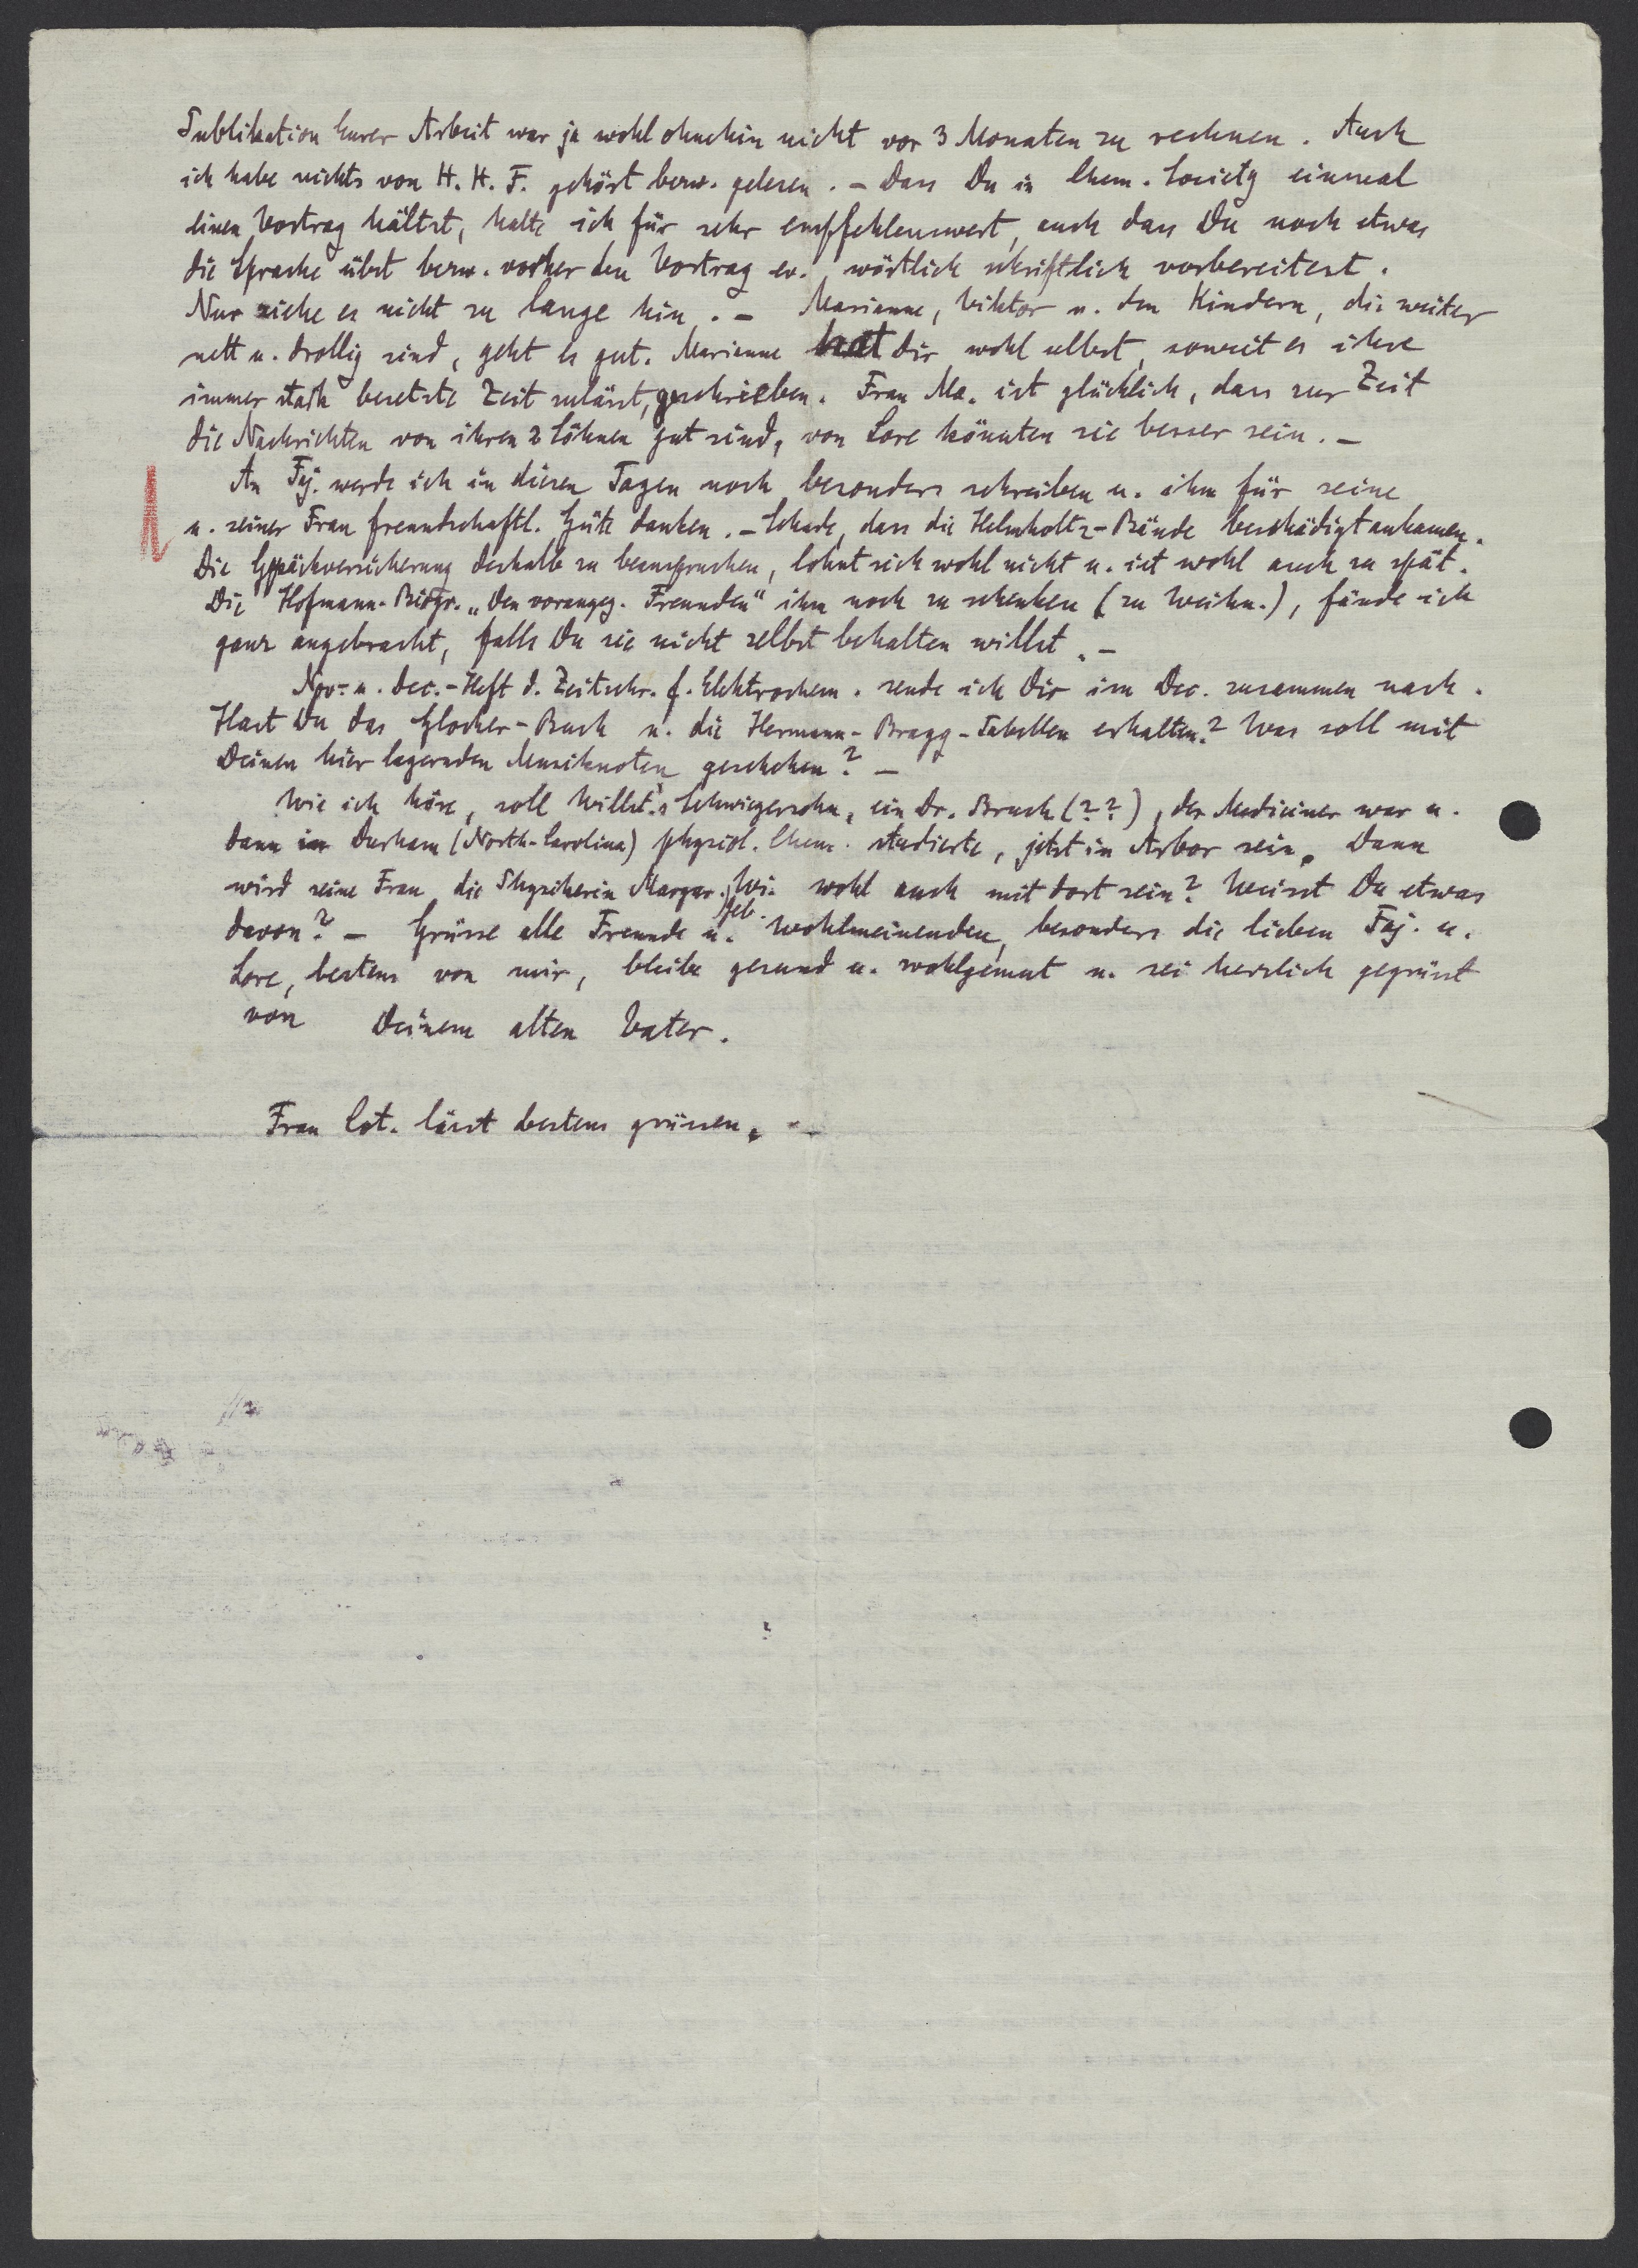 Publikation Eurer Arbeit war ja wohl ohnehin nicht vor 3 Monaten zu rechnen. Auch
ich habe nichts von H. H. F. gehört bezw. gelesen. – Dass Du in Chem. Society einmal
einen Vortrag hältst, halte ich für sehr empfehlenswert, auch dass Du noch etwas
die Sprache übst bezw. vorher den Vortrag ev. wörtlich schriftlich vorbereitest.
Nur ziehe es nicht zu lange hin. – Marianne, Viktor u. den Kindern, die weiter
nett u. drollig sind, geht es gut. Marianne hat Dir wohl selbst, soweit es ihre
immer stark besetzte Zeit zulässt, geschrieben. Frau Ma. ist glücklich, dass zur Zeit
die Nachrichten von ihren 2 Söhnen gut sind, von Lore könnten sie besser sein. –
An Faj. werde ich in diesen Tagen noch besonders schreiben u. ihm für seine
u. seiner Frau freundschaftl. Güte danken. – Schade, dass die Helmholtz-Bände beschädigt ankamen.
Die Gepäckversicherung deshalb zu beanspruchen, lohnt sich wohl nicht u. ist wohl auch zu spät.
Die Hofmann-Biogr. „Den vorangeg. Freunden" ihm noch zu schenken (zu Weihn.), fände ich
ganz angebracht, falls Du sie nicht selbst behalten willst. –
Nov.- u. Dec.-Heft d. Zeitschr. f. Elektrochem. sende ich Dir im Dec. zusammen nach.
Hast Du das Glocker-Buch u. die Hermann-Bragg-Tabellen erhalten? Was soll mit
Deinen hier lagernden Musiknoten geschehen? –
Wie ich höre, soll Willst.'s Schwiegersohn, ein Dr. Bruch (??), der Mediciner war u.
dann in Durham (North-Carolina) physiol. Chem. studierte, jetzt in Arbor sein. Dann
wird seine Frau, die Physikerin Margar. geb. Wi. wohl auch mit dort sein? Weisst Du etwas
davon? – Grüsse alle Freunde u. Wohlmeinenden, besonders die lieben Faj. u.
Lore, bestens von mir, bleibe gesund u. wohlgemut u. sei herzlich gegrüsst
von Deinem alten Vater.
Frau Cat. lässt bestens grüssen. –